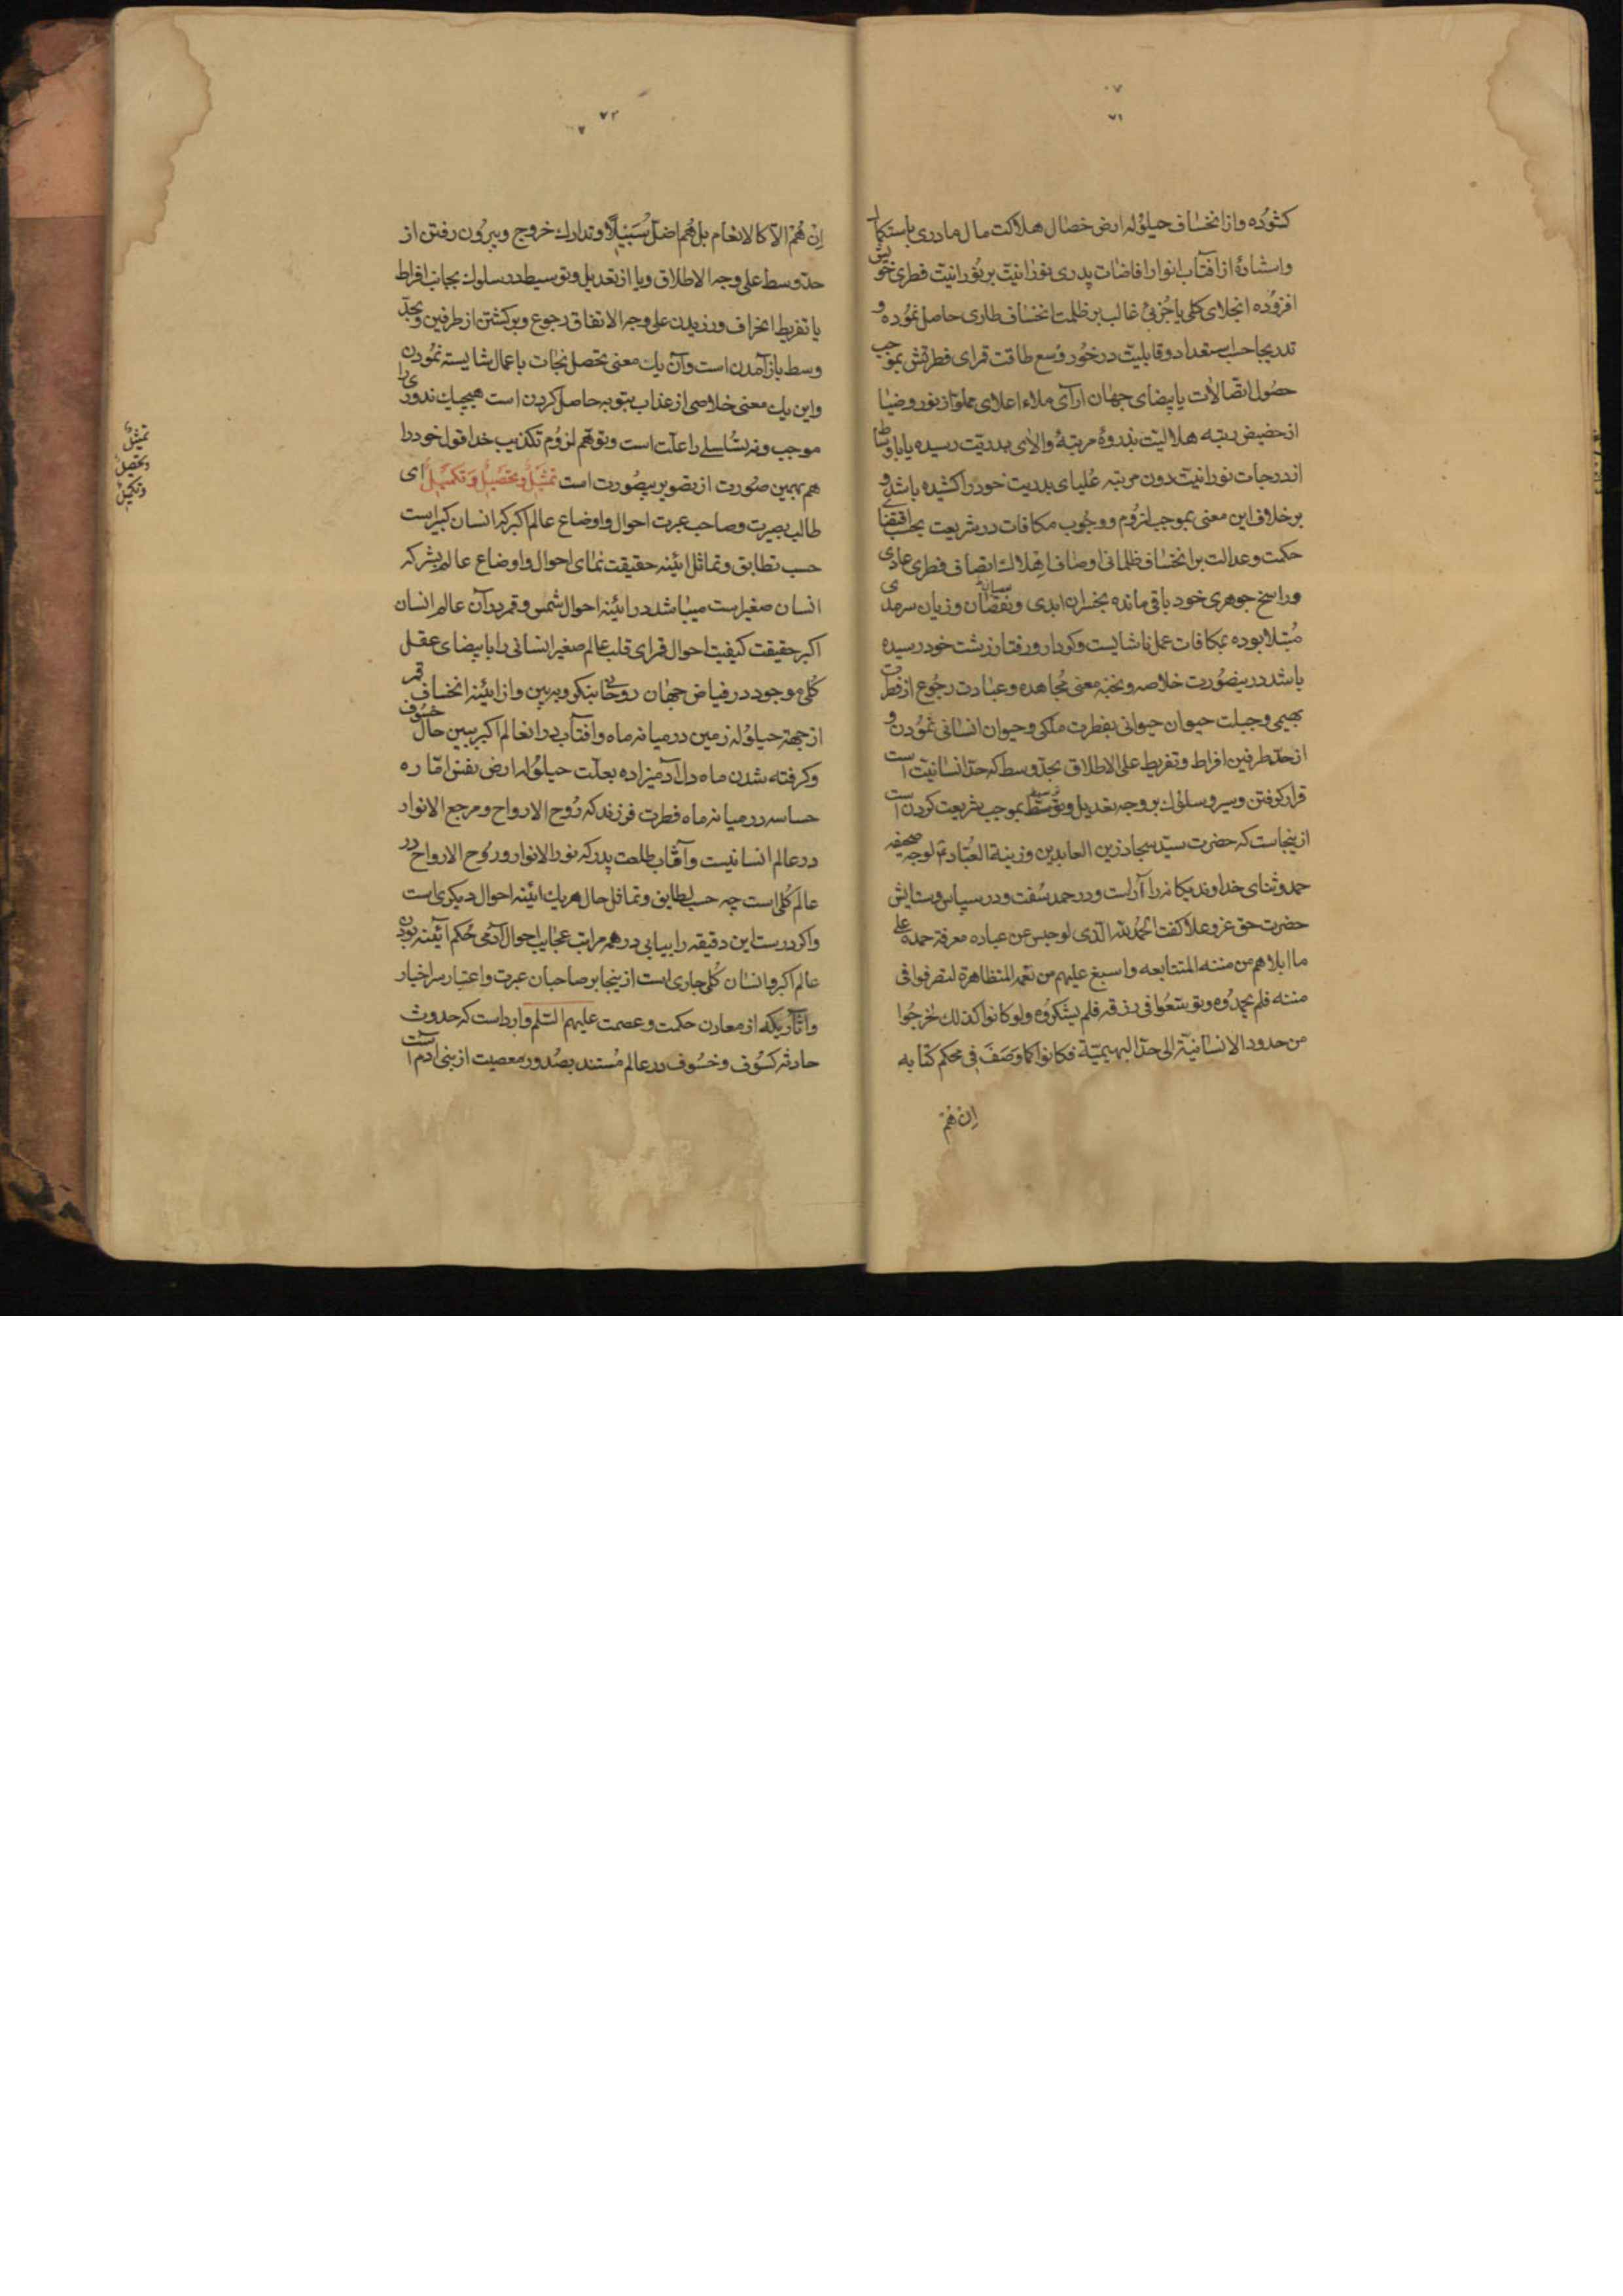 ۷۱
کشوده و از انخساف حیلوله ارض خصال هلاکت مال مادری باستکمال
و استشارهٔ از آفتاب انوار افاضات پدری نورانیت بر نورانیت فطری خویش
افزوده انجلای کلی یا جزئی غالب بر ظلمت انخساف طاری حاصل نموده و
تدریجا حسب استعداد و قابلیت در خور وسع طاقت قمرای فطرتش بموجب
حصول اتصالات با بیضای جهان آرای ملاء اعلای مملو از نور و ضیا
از حضیض رتبه هلالیت بذروهٔ مرتبهٔ والای بدریت رسیده یا باوساط
اندرجات نورانیت دون مرتبه علیای بدریت خود را کشیده باشد و
بر خلاف این معنی بموجب لزوم و وجوب مکافات در شریعت بحسب اقتضا
حکمت و عدالت بر انخساف ظلمانی اوصاف اتصاف فطری عادی
و راسخ جوهری خود باقی مانده بخسران ابدی و نقصان و زیان سرمدی
مبتلا بوده بمکافات عمل ناشایست و کردار و رفتار زشت خود رسیده
باشد درینصورت خلاصه و نخبه معنی مجاهده و عبادت رجوع از فطرت
بهیمی و جبلت حیوان حیوانی بفطرت ملکی و حیوان انسانی نمودن و
از حد طرفین افراط و تفریط علی الاطلاق بحد وسط که حد انسانیت است
قرار گرفتن و سیر و سلوک بر وجه تعدیل و توسط بموجب شریعت کردن است
ازینجاست که حضرت سید سجاد زین العابدین و زینة العباد لوحه صحیفه
حمد و ثنای خداوند یکانه را آراست و در حمد سفت و در سپاس و ستایش
حضرت حق عز و علا گفت الحمد لله الذی لو حبس عن عباده معرفة حمده علی
ما ابلاهم من مننه المتتابعه و اسبغ علیهم من نعمه المتظاهرة لتصرفوا فی
مننه فلم یحمدوه و توسعوا فی رزقه فلم یشکروه ولو کانوا کذلک لخرجوا
من حدود الانسانیة الی حد البهیمیة فکانوا کما وصف فی محکم کتابه
ان هم
۷۲
ان هم الا کالانعام بل هم اضل سبیلا و تدارک خروج و بیرون رفتن از
حد وسط علی وجه الاطلاق و یا از تعدیل و توسیط در سلوک بجانب افراط
یا تفریط انحراف ورزیدن علی وجه الاتفاق رجوع و برگشتن از طرفین و بحد
وسط باز آمدن است و آن یک معنی تحصل نجات باعمال شایسته نمودن
و این یک معنی خلاصی از عذاب بتوبه حاصل کردن است هیچیک
موجب و نه تناسلی را علت است و توهم لزوم تکذیب خدا قول خود را
هم بهمین صورت از تصویر بیصورت است تمثیل و تحصیل و تکمیل ای
طالب بصیرت و صاحب عبرت احوال و اوضاع عالم اکبر که انسان کبیر است
حسب تطابق و تماثل آئینه حقیقت نمای احوال و اوضاع عالم بشر که
انسان صغیر است میباشد در آئینه احوال شمس و قمر در آن عالم انسان
اکبر حقیقت کیفیت احوال قمرای قلب عالم صغیر انسانی را با بیضای عقل
کلی موجود در فیاض جهان روحانی بنگر و ببین و از آئینه انخساف قمر
از جهته حیلوله زمین در میانه ماه و آفتاب در انعالم اکبر ببین حال خسوف
و گرفته شدن ماه دل آدمیزاده بعلت حیلوله ارض نفس اماره
حساسه در میانه ماه فطرت فرزند که روح الارواح و مرجع الانوار
در عالم انسانیت و آفتاب طلعت پدر که نور الانوار و روح الارواح در
عالم کلی است چه حسب تطابق و تماثل حال هر یک آئینه احوال دیگری است
و اگر درست این دقیقه را بیابی در همه مراتب عجایب احوال آدمی حکم آئینه بودن
عالم اکبر و انسان کلی جاری است ازینجا بر صاحبان عبرت و اعتبار سر اخبار
و آثاریکه از معادن حکمت و عصمت علیهم السلم وارد است که حدوث
حادثه کسوف و خسوف در عالم مستند بصدور معصیت از بنی آدم است
تمثیل
و تحصیل
و تکمیل